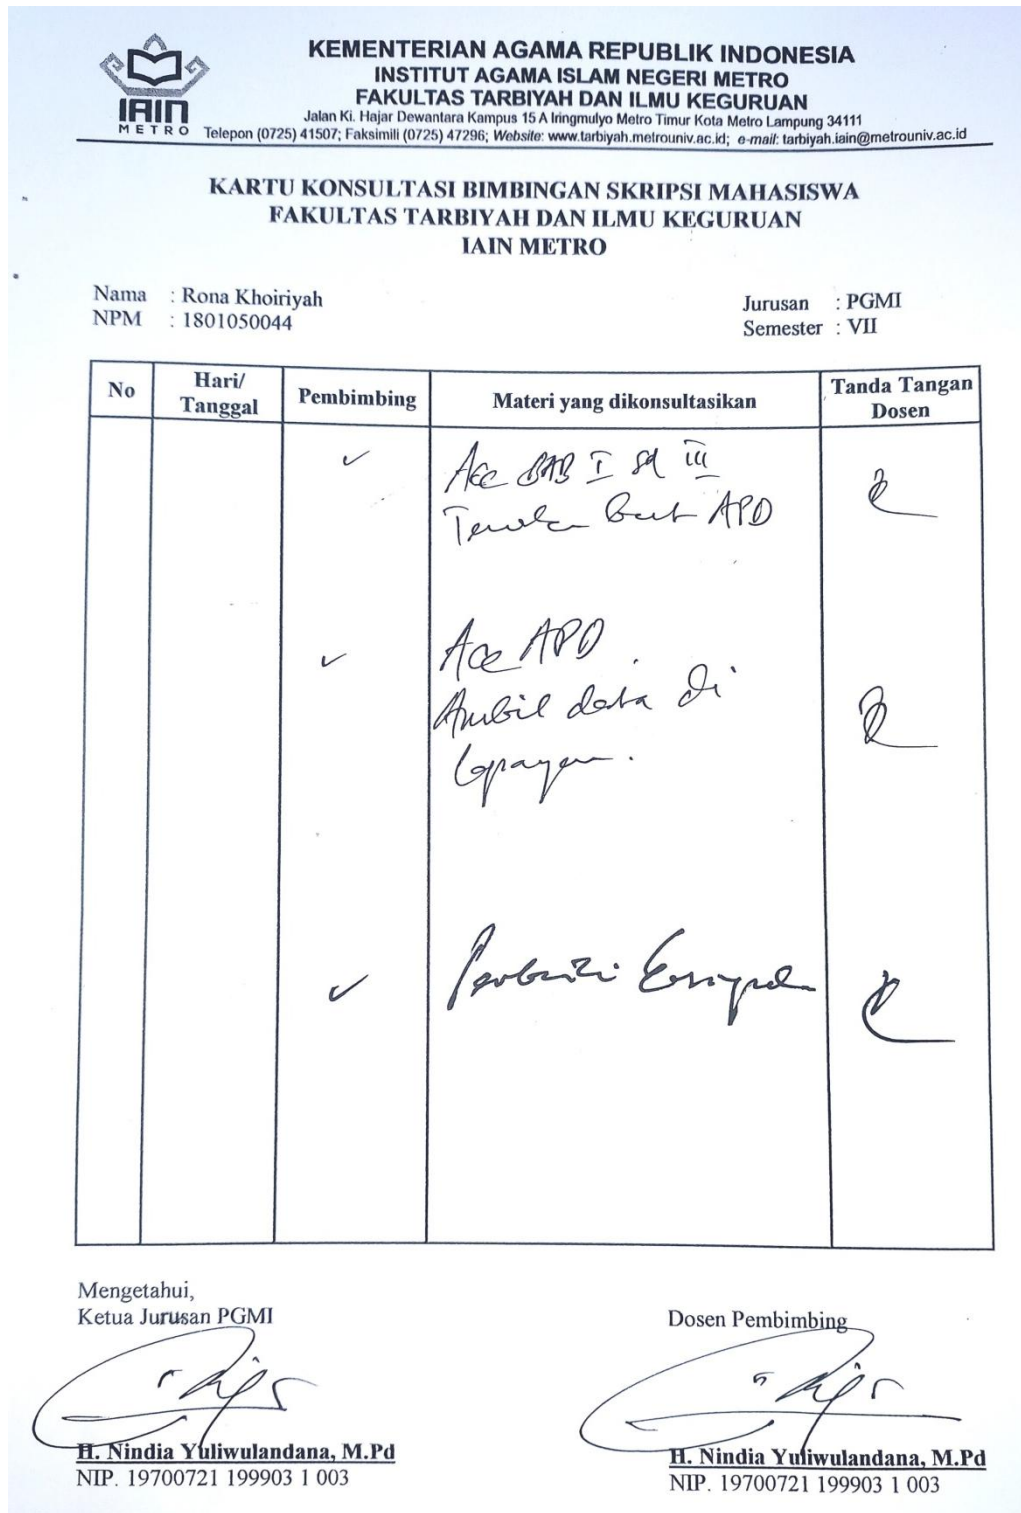 IAIN
METRO
KEMENTERIAN AGAMA REPUBLIK INDONESIA
INSTITUT AGAMA ISLAM NEGERI METRO
FAKULTAS TARBIYAH DAN ILMU KEGURUAN
Jalan Ki. Hajar Dewantara Kampus 15 A Iringmulyo Metro Timur Kota Metro Lampung 34111
Telepon (0725) 41507; Faksimili (0725) 47296; Website: www.tarbiyah.metrouniv.ac.id; e-mail: tarbiyah.iain@metrouniv.ac.id
KARTU KONSULTASI BIMBINGAN SKRIPSI MAHASISWA
FAKULTAS TARBIYAH DAN ILMU KEGURUAN
IAIN METRO
Nama : Rona Khoiriyah
NPM : 1801050044
Jurusan : PGMI
Semester : VII
No
Hari/
Tanggal
Pembimbing
Materi yang dikonsultasikan
Tanda Tangan
Dosen
Acc BAB I sd III
APD
Acc APD
Ambil data di
Mengetahui,
Ketua Jurusan PGMI
H. Nindia Yuliwulandana, M.Pd
NIP. 19700721 199903 1 003
Dosen Pembimbing
H. Nindia Yuliwulandana, M.Pd
NIP. 19700721 199903 1 003